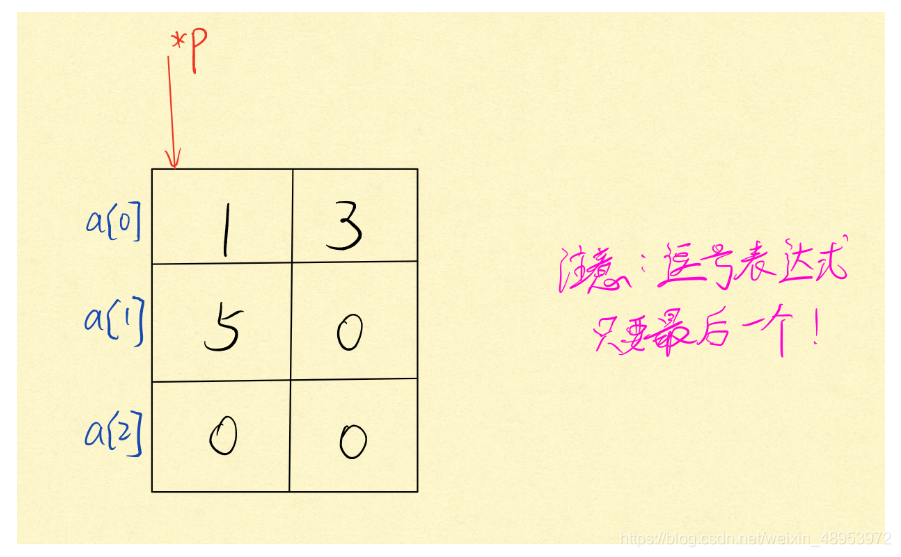 *P
a[0] 1 3
a[1] 5 0
a[2] 0 0
注意：逗号表达式
只要最后一个！
https://blog.csdn.net/weixin_48953972